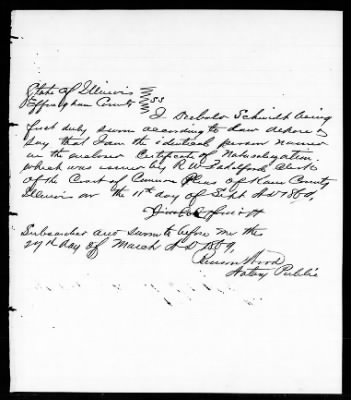 State of Illinois
Effingham County } SS
I Diebold Schmidt being
first duly sworn according to law depose &
say that I am the identical person named
in the enclosed Certificate of Naturalization
which was issued by R W Clerk
of the Court of Common Pleas of Kane County
Illinois on the 11th day of Sept AD 1860,
Subscribed and sworn to before me the
29th day of March AD 1869,
Benson Wood
Notary Public